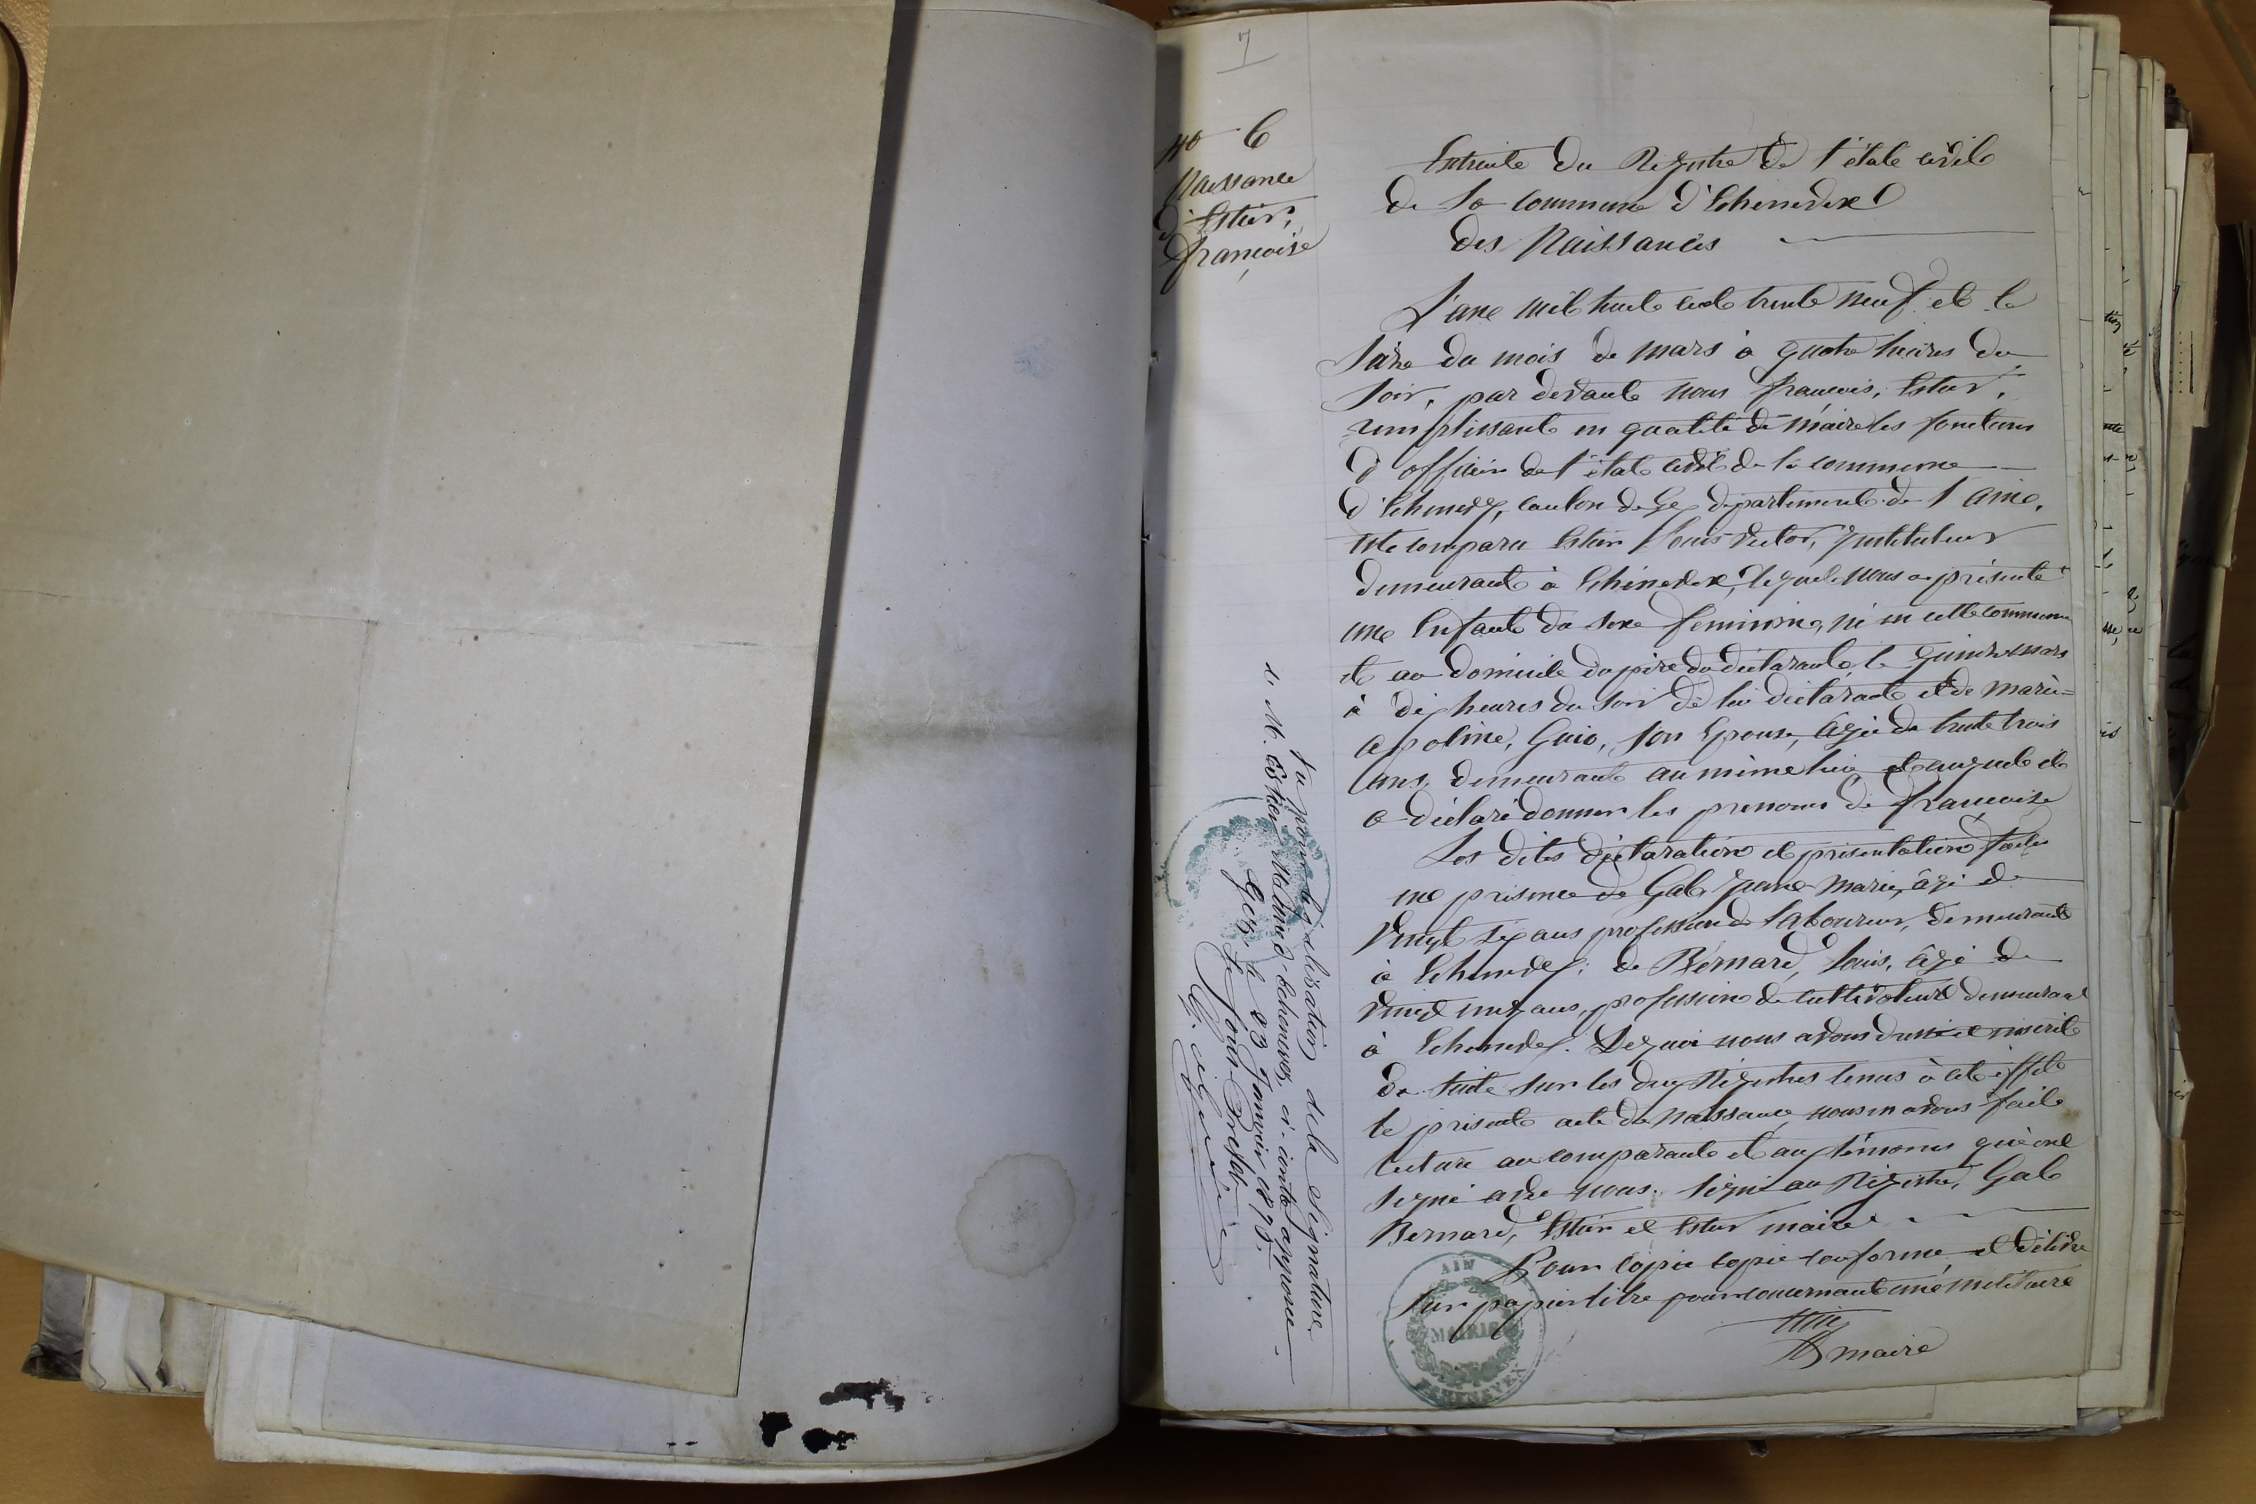 7
No 6
Naissance
d'Estier,
françoise
Extraite du Registre de l'étate civile
de la commune d'Echenevex
des Naissances
L'ane mil huite cent trente neuf et le
saize du mois de mars à quatre heures du
soir, par devante nous françois, Estier,
remplissante en qualité de maire les fonctions
d'officier de l'état civil de la commune
d'Echenevex, canton de Gex département de l'Aine,
este comparu Estier Louis Victor, Instituteur
demeurante à Echenevex, lequel nous a présenté
une Enfante du sexe feminine, né en cette commune
et au domicile du père du déclarante, le quinze mars
à dix heures du soir de lui déclarante et de marie
apoline, Guio, son Epouse, agée de trente trois
ans, demeurante au même lieu et auquele il
a déclaré donner les prenoms de françoise
Les dites déclaration et présentation faites
ne présence de Gale Jeane Marie, âgé de
vingt six ans profession de laboureur, demeurante
à Echenevex; de Bernard, Louis, âgé de
vingt neuf ans, profession de cultivateur demeurant
à Echenevex. De quoi nous avons dressé et inscrit
de suite sur les deux Régistres tenus à cet effet
le présente acte de naissance, nous en avons faite
lecture au comparante et aux témoins qui one
signé avec nous. Signé au Régistre, Gale
Bernard, Estier et Estier maire
Pour copie copie conforme et délivré
sur papier libre pour concernante une militaire
maire
AIN
MAIRIE
ECHENEVEX
Vu pour légalisation de la signature
de M. Estier Maire d'Echenevex, ci-contre apposée
Gex le 23 Janvier 1873.
Le Sous-Préfet